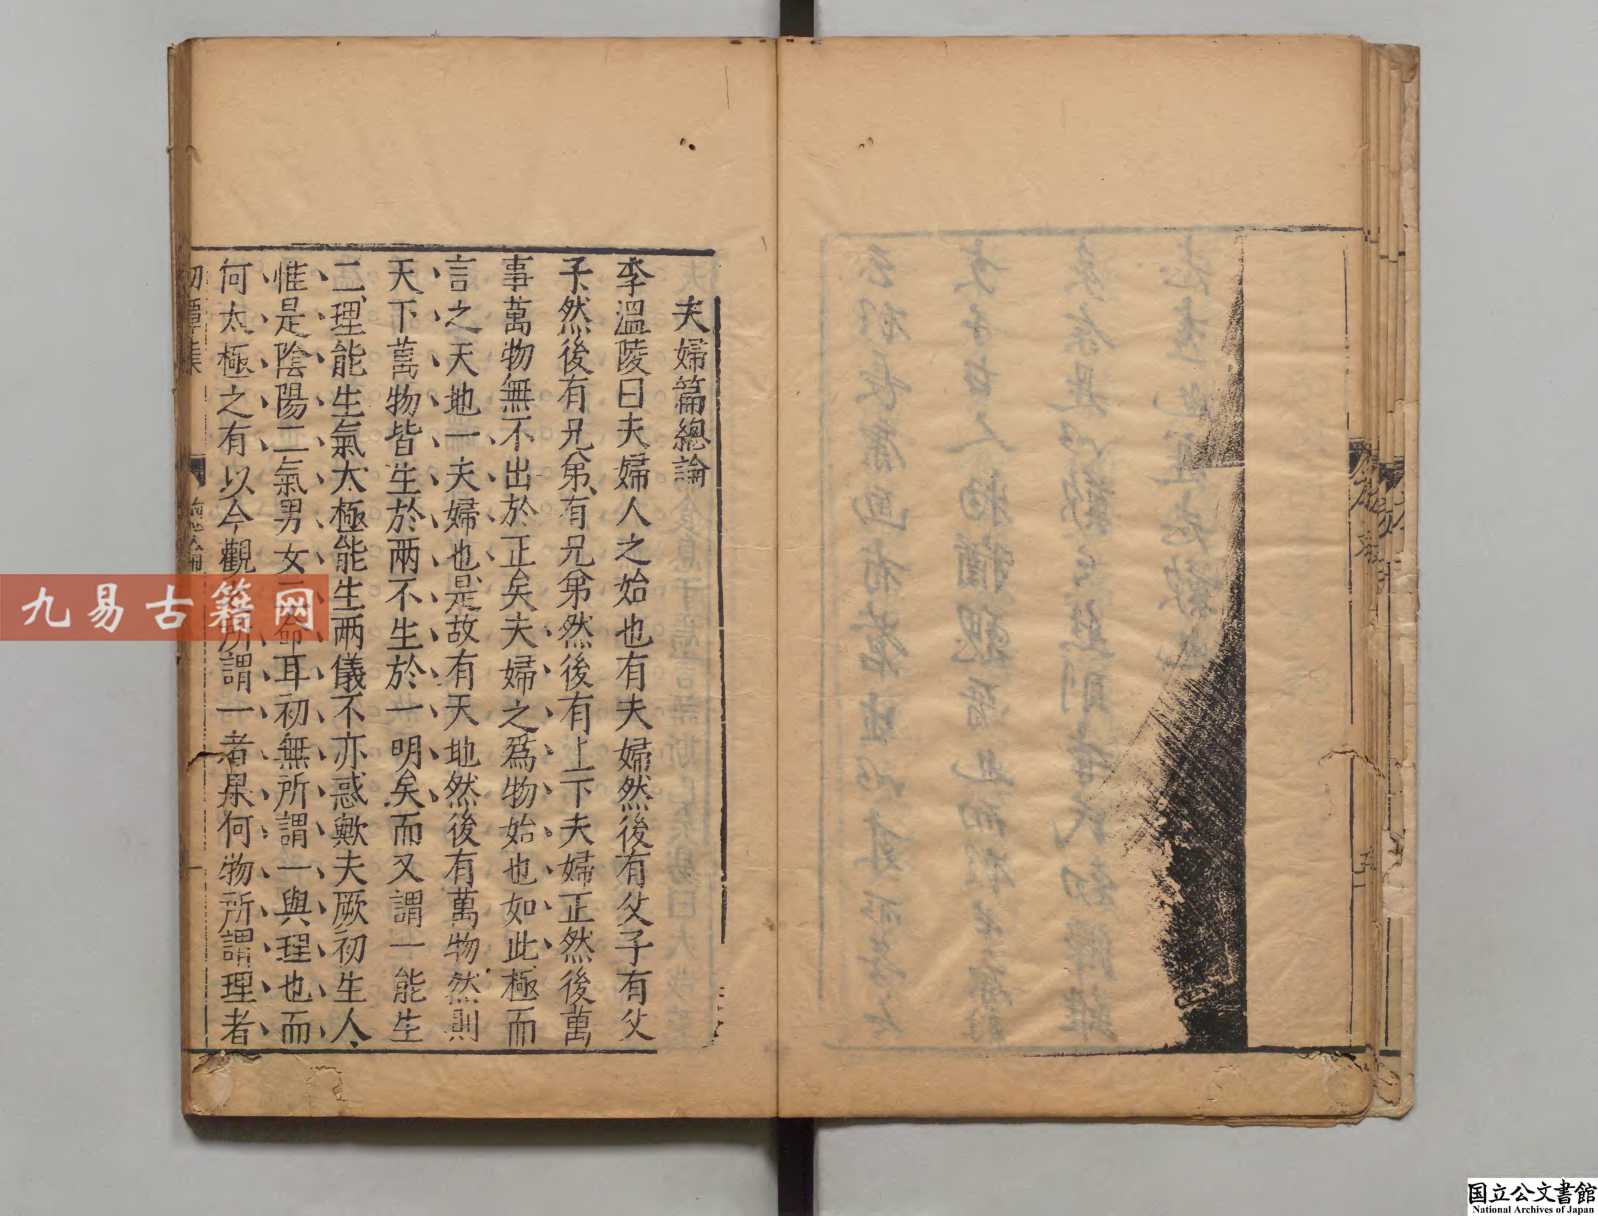 夫婦篇總論
李溫陵曰夫婦人之始也有夫婦然後有父子有父
子然後有兄弟有兄弟然後有上下夫婦正然後萬
事萬物無不出於正矣夫婦之爲物始也如此極而
言之天地一夫婦也是故有天地然後有萬物然則
天下萬物皆生於兩不生於一明矣而又謂一能生
二理能生氣太極能生兩儀不亦惑歟夫厥初生人
惟是陰陽二氣男女二命耳初無所謂一與理也而
何太極之有以今觀所謂一者果何物所謂理者
初潭集
九易古籍网
国立公文書館
National Archives of Japan